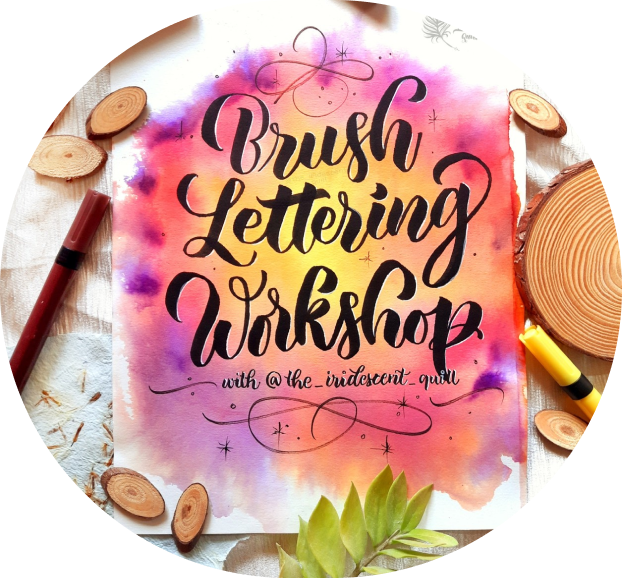 Brush
Lettering
Workshop
with @the_iridescent_quill